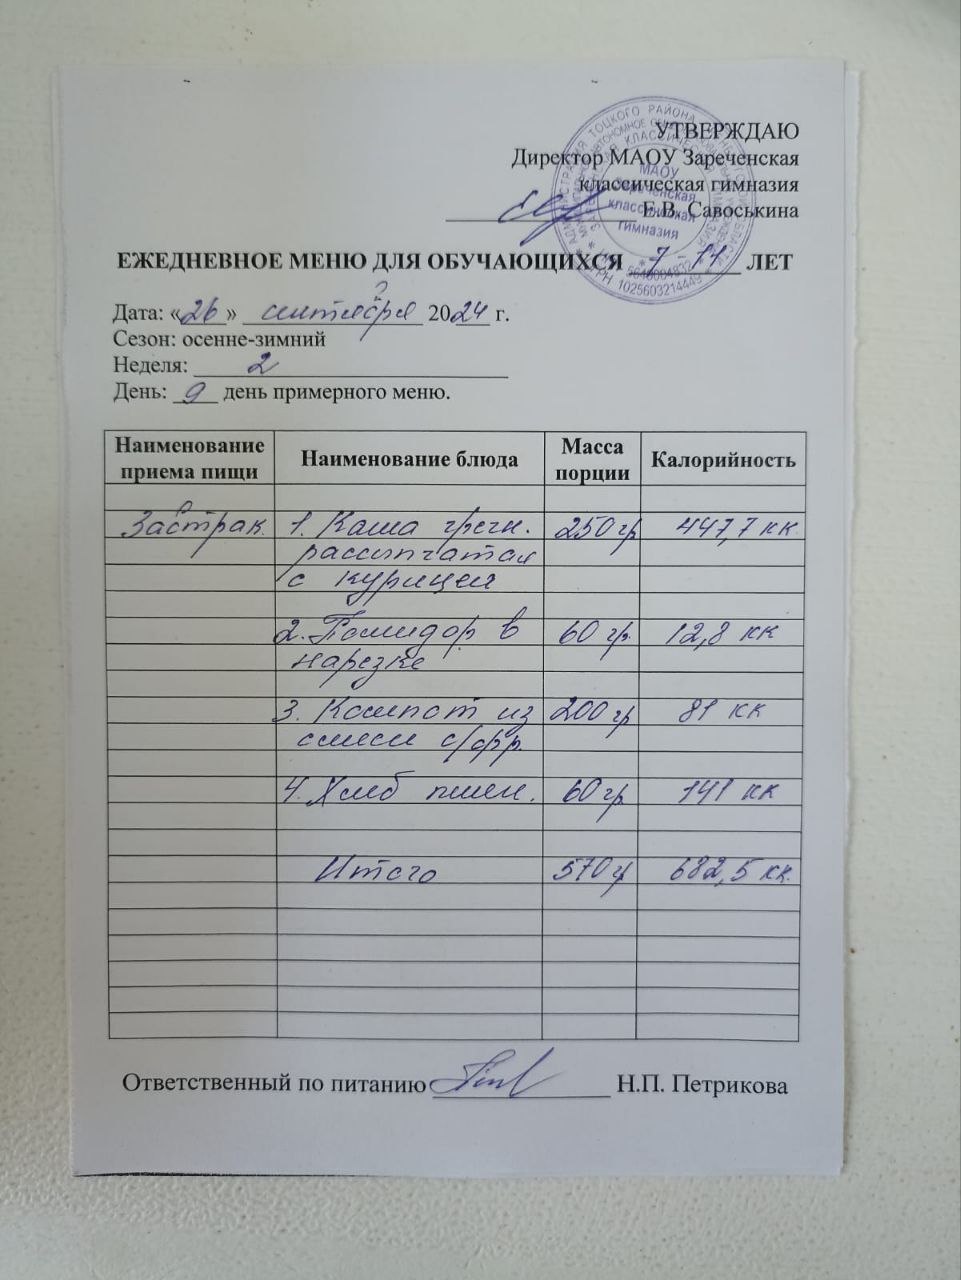 УТВЕРЖДАЮ
Директор МАОУ Зареченская
классическая гимназия
Е.В. Савоськина
МАОУ
Зареченская
классическая
гимназия
ОГРН 1025603214449
ЕЖЕДНЕВНОЕ МЕНЮ ДЛЯ ОБУЧАЮЩИХСЯ 7 - 11 ЛЕТ
Дата: «26» сентября 2024 г.
Сезон: осенне-зимний
Неделя: 2
День: 9 день примерного меню.
Наименование приема пищи Наименование блюда Масса порции Калорийность
Завтрак 1. Каша гречн. 250 гр 447,7 кк
рассыпчатая
с курицей
2. Помидор в 60 гр 12,8 кк
нарезке
3. Компот из 200 гр 81 кк
смеси с/фр.
4. Хлеб пшен. 60 гр 141 кк
Итого 570 гр 682,5 кк.
Ответственный по питанию Н.П. Петрикова